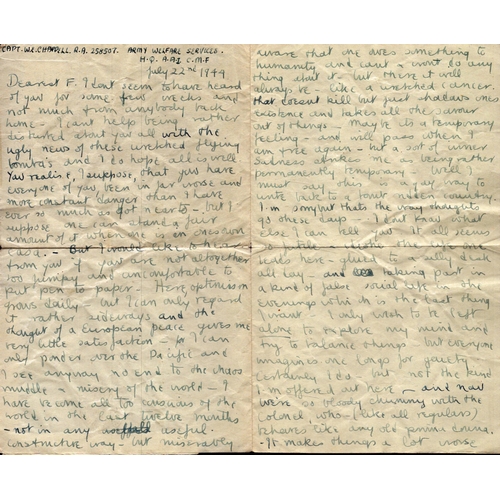 CAPT. W.R. CHAPPELL. R.A. 258507. ARMY WELFARE SERVICES.
H.Q. A.A.I. C.M.F
July 22nd 1944
Dearest F. I don't seem to have heard
of you for some few weeks and
not much from anybody back
home - I can't help being rather
disturbed about you all with the
ugly news of these wretched flying
bombs and I do hope all is well
You realise, I suppose, that you have
everyone of you, been in far worse and
more constant danger than I have
ever so much as got near to - but I
suppose one can stand a fair
amount of it when one is in ones own
casa. - But I would like to hear
from you if you are not altogether
too jumpy and uncomfortable to
put pen to paper. Here optimism
grows daily - but I can only regard
it rather sideways and the
thought of a European peace gives me
very little satisfaction - for I can
only ponder over the Pacific and
I see anyway no end to the chaos
muddle - misery of the world - I
have become all too conscious of the
world in the last twelve months
- not in any useful
constructive way - but miserably
aware that one owes something to
humanity and cant - wont do any
thing about it - but there it will
always be - like a wretched cancer
that doesnt kill but just shadows ones
existence and takes all the savour
out of things - Maybe its a temporary
feeling and will pass when I
am free again - but a sort of inner
sadness strikes me as being rather
permanently temporary. Well I
must say, this is a gay way to
write talk to a
I'm sorry but thats the way things
go these days - I dont know what
else I can tell you it all seems
so futile - the life one
leads here - glued to a silly desk
all day - and taking part in
a kind of false social life in the
evenings which is the last thing
I want. I only wish to be left
alone to explore my mind and
try to balance things - but everyone
imagines one longs for gaiety
certainly I do - but not the kind
I'm offered out here - and now
we're so bloody chummy with the
colonel who - (like all regulars)
behaves like any old prima donna.
- It makes things a lot worse